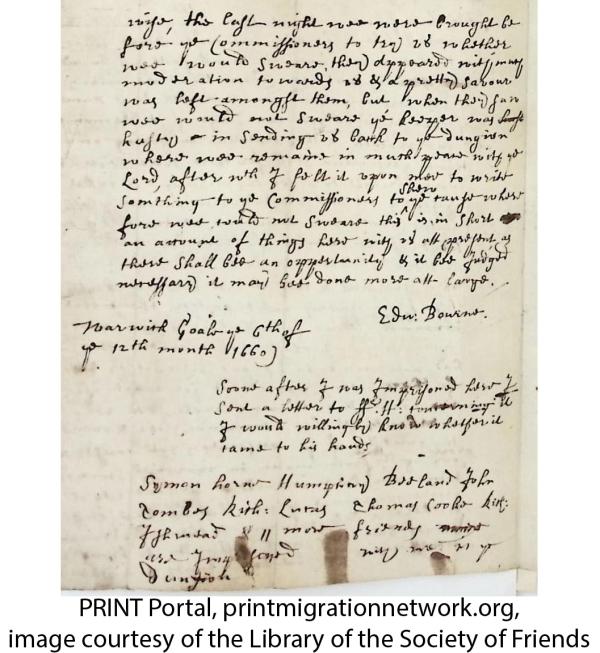 wise, the last night wee were brought be
fore ye Commissioners to try vs whether
wee would Sweare, they appeared with much
moderation towards vs & a pretty savour
was left amongst them, but when they saw
wee would not Sweare ye keeper was
hasty in Sending vs back to ye dungion
where wee remaine in much peace with ye
Lord, after wch I felt it upon mee to write
Something to ye Commissioners to Shew ye cause where
fore wee could not Sweare this is in Short
an account of things here with vs att present, as
there Shall bee an oppertunity & it bee Judged
necessary it may bee done more att large.
Edw: Bourne.
Warwick Goale ye 6th of
ye 12th month (1660)
Soone after I was Imprisoned here I
Sent a letter to concerning it
I would willingly know whether it
came to his hands
Symon horne Humphry Beeland John
Combes Rich: Lucas Thomas Cooke Rich:
& 11 more friends
are with me in ye
Dungion
PRINT Portal, printmigrationnetwork.org,
image courtesy of the Library of the Society of Friends